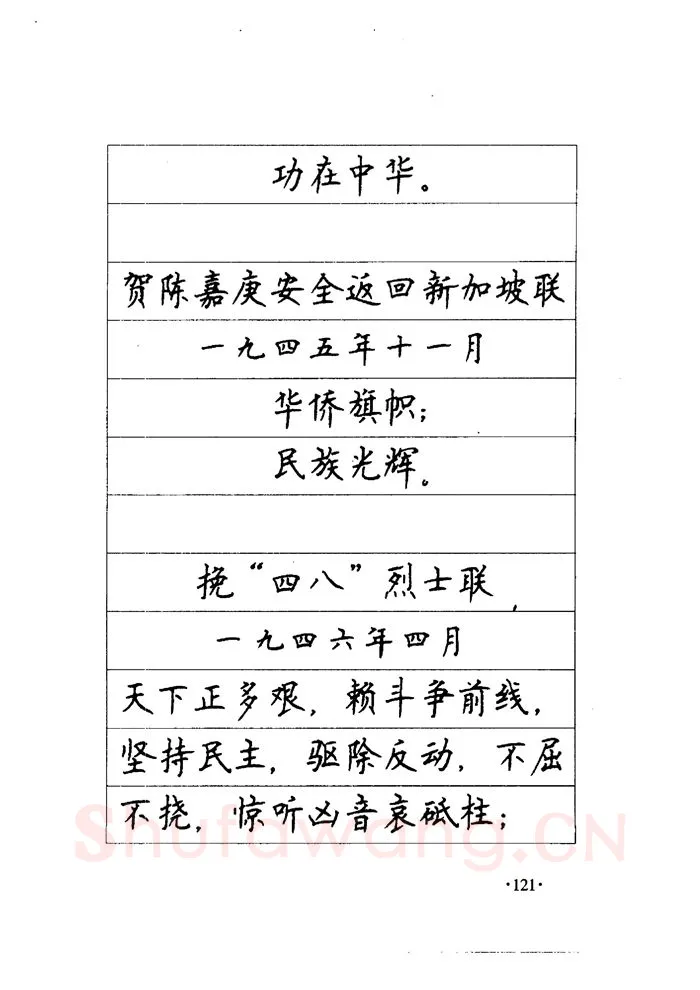 功在中华。
贺陈嘉庚安全返回新加坡联
一九四五年十一月
华侨旗帜；
民族光辉。
挽“四八”烈士联
一九四六年四月
天下正多艰，赖斗争前线，
坚持民主，驱除反动，不屈
不挠，惊听凶音哀砥柱；
Shufawang.CN
·121·